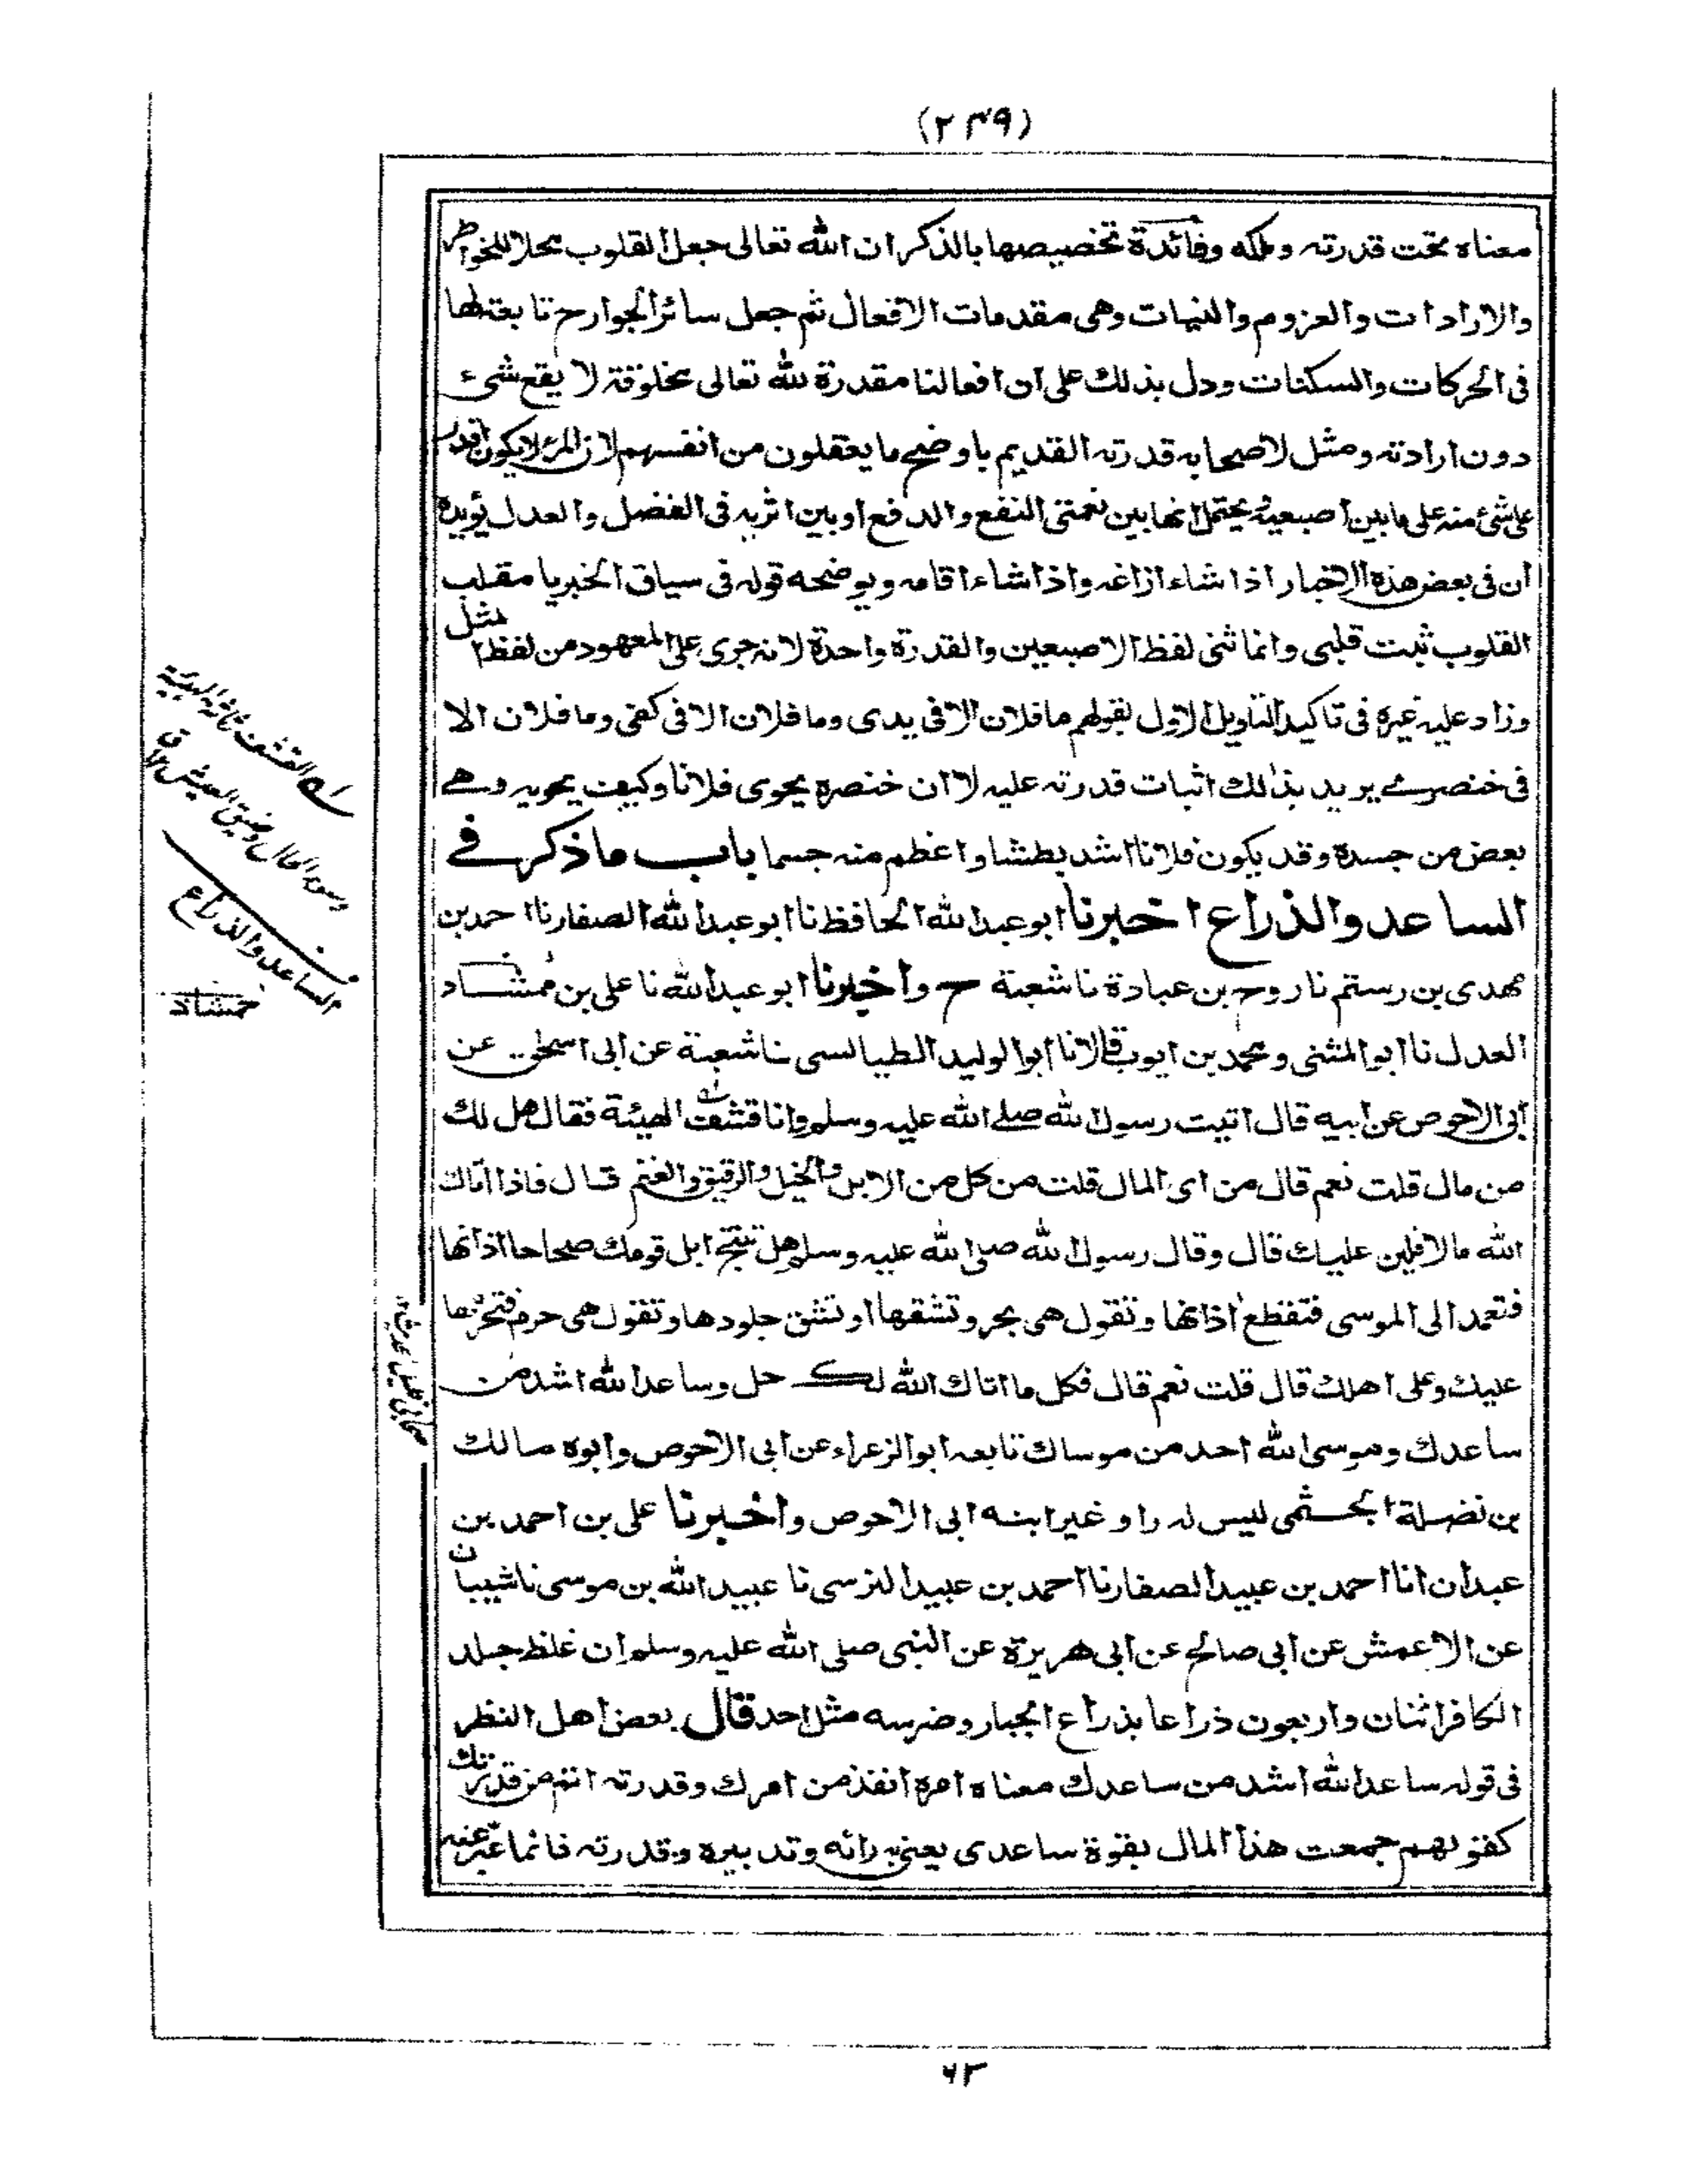 (٢٤٩)
معناه تحت قدرته وملكه وفائدة تخصيصها بالذكر ان الله تعالى جعل القلوب محلا للخواطر
والارادات والعزوم والنيات وهى مقدمات الافعال ثم جعل سائر الجوارح تابعة لها
فى الحركات والسكنات ودل بذلك على ان افعالنا مقدرة لله تعالى مخلوقة لا يقع شىء
دون ارادته ومثل لاصحابه قدرته القديم باوضح ما يعقلون من انفسهم لان المرء لا يكون اقدر
على شئ منه على ما بين اصبعيه ويحتمل انها بين نعمتى النفع والدفع او بين اثريه فى الفضل والعدل يؤيده
ان فى بعض هذه الاخبار اذا شاء ازاغه واذا شاء اقامه ويوضحه قوله فى سياق الخبر يا مقلب
القلوب ثبت قلبى وانما ثنى لفظ الاصبعين والقدرة واحدة لانه جرى على المعهود من لفظ مثل
وزاد عليه غيره فى تاكيد التاويل الاول بقولهم ما فلان الا فى يدى وما فلان الا فى كفى وما فلان الا
فى خنصرى يريد بذلك اثبات قدرته عليه لا ان خنصره يحوى فلانا وكيف يحويه وهى
بعض من جسده وقد يكون فلانا اشد بطشا واعظم منه جسما باب ما ذكر فى
الساعد والذراع اخبرنا ابو عبد الله الحافظ نا ابو عبد الله الصفار نا احمد بن
مهدى بن رستم نا روح بن عبادة نا شعبة ح واخبرنا ابو عبد الله نا على بن حمشاد
العدل نا ابو المثنى ومحمد بن ايوب قالا نا ابو الوليد الطيالسى نا شعبة عن ابى اسحٰق عن
ابى الاحوص عن ابيه قال اتيت رسول الله صلى الله عليه وسلم وانا قشف الهيئة فقال هل لك
من مال قلت نعم قال من اى المال قلت من كل من الابل والخيل والرقيق والغنم قال فاذا اتاك
الله مالا فلين عليك قال وقال رسول الله صلى الله عليه وسلم هل تنتج ابل قومك صحاحا اذانها
فتعمد الى الموسى فتقطع اذانها وتقول هى بحر وتشقها او تشق جلودها وتقول هى حرم فتحرمها
عليك وعلى اهلك قال قلت نعم قال فكل ما اتاك الله لك حل وساعد الله اشد من
ساعدك وموسى الله احد من موساك تابعه ابو الزعراء عن ابى الاحوص وابوه مالك
بن نضلة الجشمى ليس له راو غير ابنه ابى الاحوص واخبرنا على بن احمد بن
عبدان انا احمد بن عبيد الصفار نا احمد بن عبيد النرسى نا عبيد الله بن موسى نا شيبان
عن الاعمش عن ابى صالح عن ابى هريرة عن النبى صلى الله عليه وسلم ان غلظ جلد
الكافر اثنان واربعون ذراعا بذراع الجبار وضرسه مثل احد قال بعض اهل النظر
فى قوله ساعد الله اشد من ساعدك معناه امره انفذ من امرك وقدرته اتم من قدرتك
كقولهم جمعت هذا المال بقوة ساعدى يعنى به رائه وتدبيره وقدرته فانما عبر عنه
القشف رثاثة الهيئة
وسوء الحال وضيق العيش
الساعد والذراع
حمشاد
٦٣